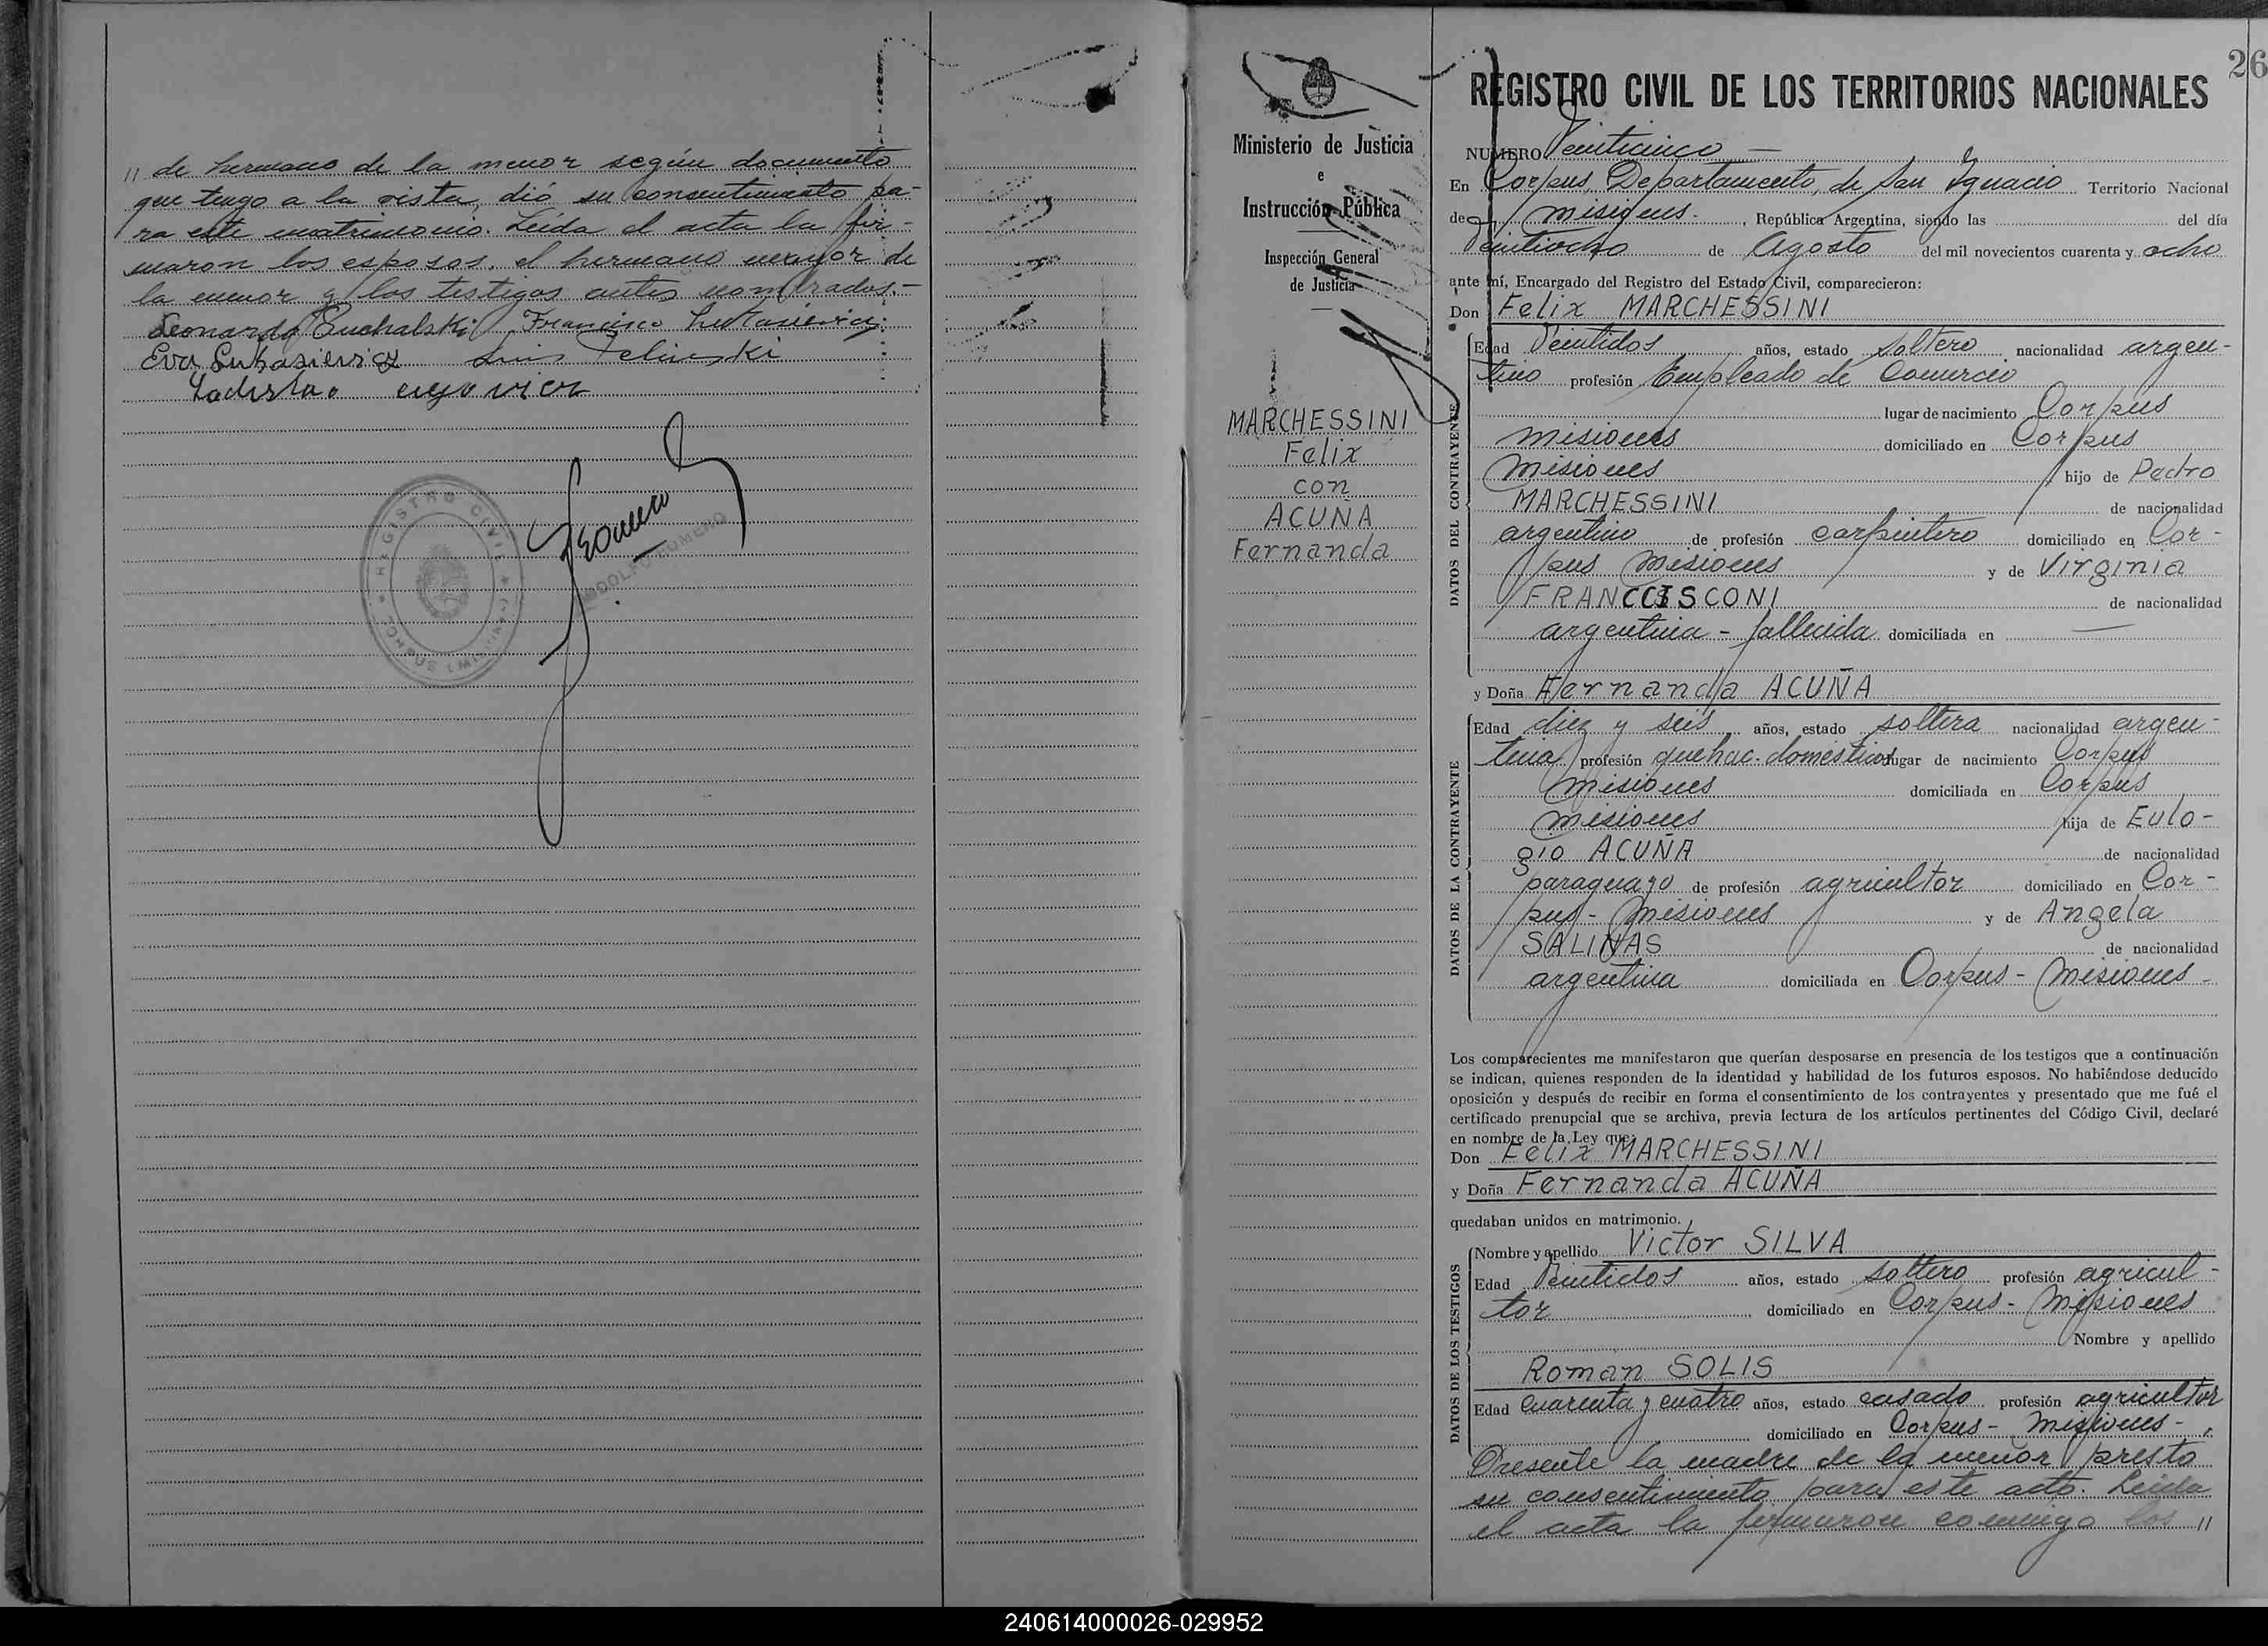 // de hermano de la menor según documento
que tengo a la vista, dió su consentimiento pa-
ra este matrimonio. Leída el acta la fir-
maron los esposos, el hermano mayor de
la menor y los testigos antes nombrados.-
Leonardo Puchalski Francisco
Eva Lukasievicz Luis
Ladislao
REGISTRO CIVIL
CORPUS (MISIONES)
ADOLFO ROMERO
Ministerio de Justicia
e
Instrucción Pública
Inspección General
de Justicia
MARCHESSINI
Felix
con
ACUÑA
Fernanda
26
REGISTRO CIVIL DE LOS TERRITORIOS NACIONALES
NUMERO Veinticinco —
En Corpus, Departamento, de San Ignacio Territorio Nacional
de Misiones. , República Argentina, siendo las del día
Veintiocho de Agosto del mil novecientos cuarenta y ocho
ante mí, Encargado del Registro del Estado Civil, comparecieron:
Don Felix MARCHESSINI
DATOS DEL CONTRAYENTE
Edad Veintidos años, estado soltero nacionalidad argen-
tino profesión Empleado de Comercio
lugar de nacimiento Corpus
Misiones domiciliado en Corpus
Misiones hijo de Pedro
MARCHESSINI de nacionalidad
argentino de profesión carpintero domiciliado en Cor-
pus Misiones y de Virginia
FRANCCISCONI de nacionalidad
argentina - fallecida domiciliada en —
y Doña Fernanda ACUÑA
DATOS DE LA CONTRAYENTE
Edad diez y seis años, estado soltera nacionalidad argen-
tina profesión quehac. domesticos lugar de nacimiento Corpus
Misiones domiciliada en Corpus
Misiones hija de Eulo-
gio ACUÑA de nacionalidad
paraguayo de profesión agricultor domiciliado en Cor-
pus - Misiones y de Angela
SALINAS de nacionalidad
argentina domiciliada en Corpus - Misiones -
Los comparecientes me manifestaron que querían desposarse en presencia de los testigos que a continuación
se indican, quienes responden de la identidad y habilidad de los futuros esposos. No habiéndose deducido
oposición y después de recibir en forma el consentimiento de los contrayentes y presentado que me fué el
certificado prenupcial que se archiva, previa lectura de los artículos pertinentes del Código Civil, declaré
en nombre de la Ley que:
Don Felix MARCHESSINI
y Doña Fernanda ACUÑA
quedaban unidos en matrimonio.
DATOS DE LOS TESTIGOS
Nombre y apellido Victor SILVA
Edad Veintidos años, estado soltero profesión agricul-
tor domiciliado en Corpus - Misiones
Nombre y apellido
Román SOLIS
Edad cuarenta y cuatro años, estado casado profesión agricultor
domiciliado en Corpus - Misiones -
Presente la madre de la menor presta
su consentimiento para este acto. Leida
el acta la firmaron conmigo los //
240614000026-029952